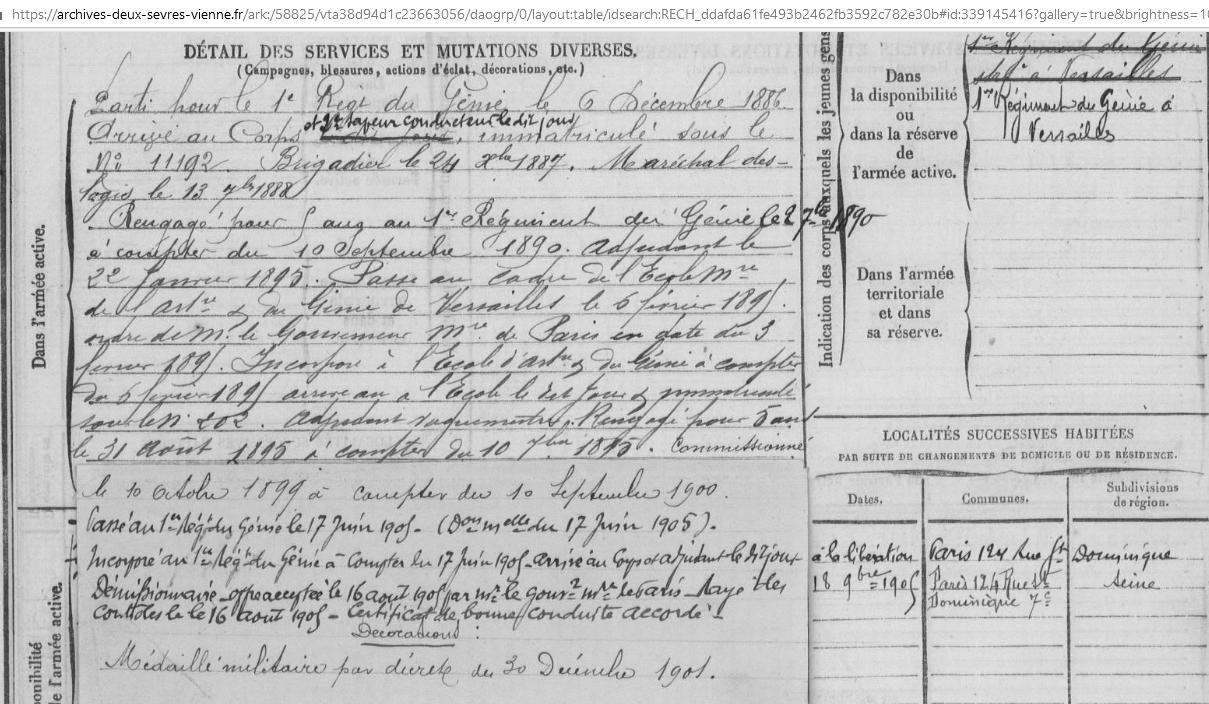 https://archives-deux-sevres-vienne.fr/ark:/58825/vta38d94d1c23663056/daogrp/0/layout:table/idsearch:RECH_ddafda61fe493b2462fb3592c782e30b#id:339145416?gallery=true&brightness=10
DÉTAIL DES SERVICES ET MUTATIONS DIVERSES.
(Campagnes, blessures, actions d'éclat, décorations, etc.)
Dans l'armée active.
Parti pour le 1e Regt du Génie le 6 Décembre 1886
et 2e sapeur conducteur le dit jour
Arrivé au Corps immatriculé sous le
No 11192. Brigadier le 24 xbre 1887. Maréchal des-
logis le 13 7bre 1888
Rengagé pour 5 ans au 1er Régiment du Génie le 2 7bre 1890
à compter du 10 Septembre 1890. Adjudant le
22 janvier 1895. Passe au cadre de l'Ecole Mre
de l'artie & du Génie de Versailles le 6 février 1895.
ordre de Mr. le Gouverneur Mre de Paris en date du 3
février 1895. Incorporé à l'Ecole d'artie & du Génie à compter
du 6 février 1895 arrivé au à l'Ecole le dit jour & immatriculé
sous le No 202. Adjudant vaguemestre. Rengagé pour 5 ans
le 31 Août 1895 à compter du 10 7bre 1895. Commissionné
le 10 Octobre 1899 à compter du 10 Septembre 1900.
Passé au 1er Régt du Génie le 17 Juin 1905. (Don melle du 17 Juin 1905).
Incorporé au 1er Régt du Génie à compter du 17 Juin 1905 arrivé au Corps et adjudant le dit jour
Démissionnaire offre acceptée le 16 août 1905 par mr le gouvr mre de Paris Rayé des
contrôles le 16 août 1905 - Certificat de bonne conduite accordé -
Décorations :
Médaille militaire par décret du 30 Décembre 1901.
ponibilité
de l'armée active.
Indication des corps auxquels les jeunes gens
Dans
la disponibilité
ou
dans la réserve
de
l'armée active.
1er Régiment du Génie
à Versailles
1er Régiment du Génie à
Versailles
Dans l'armée
territoriale
et dans
sa réserve.
LOCALITÉS SUCCESSIVES HABITÉES
PAR SUITE DE CHANGEMENTS DE DOMICILE OU DE RÉSIDENCE.
Dates. Communes. Subdivisions
de région.
à la libération Paris 124 Rue St Dominique
18 9bre 1905 Paris 124 Rue St Seine
Dominique 7e